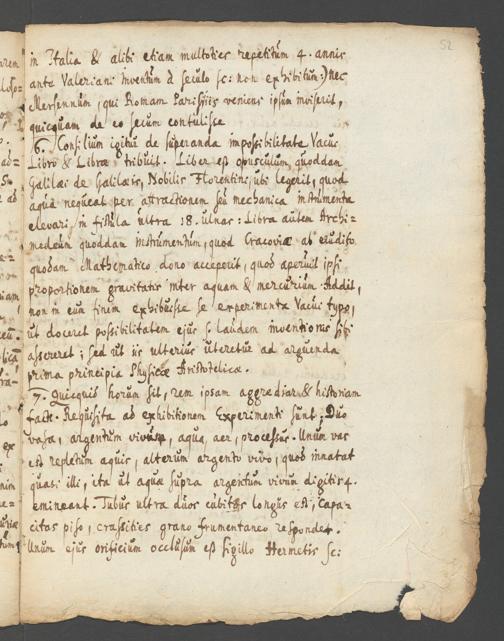 52
in Italia & alibi etiam multoties repetitum 4. annis
ante Valeriani inventum à seculo sc: non exhibitum:) Nec
Mersennum, qui Romam Parisiis veniens ipsum inviserit,
quicquam de eo secum contulisse
6. Consilium igitur de superanda impossibilitate Vacui,
Libro & Libræ tribuit. Liber est opusculum quoddam
Galilæi de Galilæis, Nobilis Florentini, ubi legerit, quod
aqua nequeat per attractionem seu mechanica instrumenta
elevari in fistula ultra 18. ulnas: Libra autem Archi=
medeum quoddam instrumentum, quod Cracoviæ ab erudito
quodam Mathematico dono acceperit, quod aperuit ipsi
proportionem gravitatis inter aquam & mercurium. Addit,
non in eum finem exhibuisse se experimenta Vacui typo,
ut doceret possibilitatem ejus & laudem inventionis sibi
assereret; sed ut iis ulterius uteretur ad arguenda
prima principia Physicæ Aristotelicæ.
7. Quicquid horum sit, rem ipsam aggrediar & historiam
facti. Requisita ad exhibitionem Experimenti sunt: Duo
vasa, argentum vivum, aqua, aer, processus. Unum vas
est repletum aquis, alterum argento vivo, quod innatat
quasi illi, ita ut aqua supra argentum vivum digitis 4.
emineant. Tubus ultra duos cubitos longus est, capa=
citas piso, crassities grano frumentaneo respondet.
Unum ejus orificium occlusum est sigillo Hermetis sc: